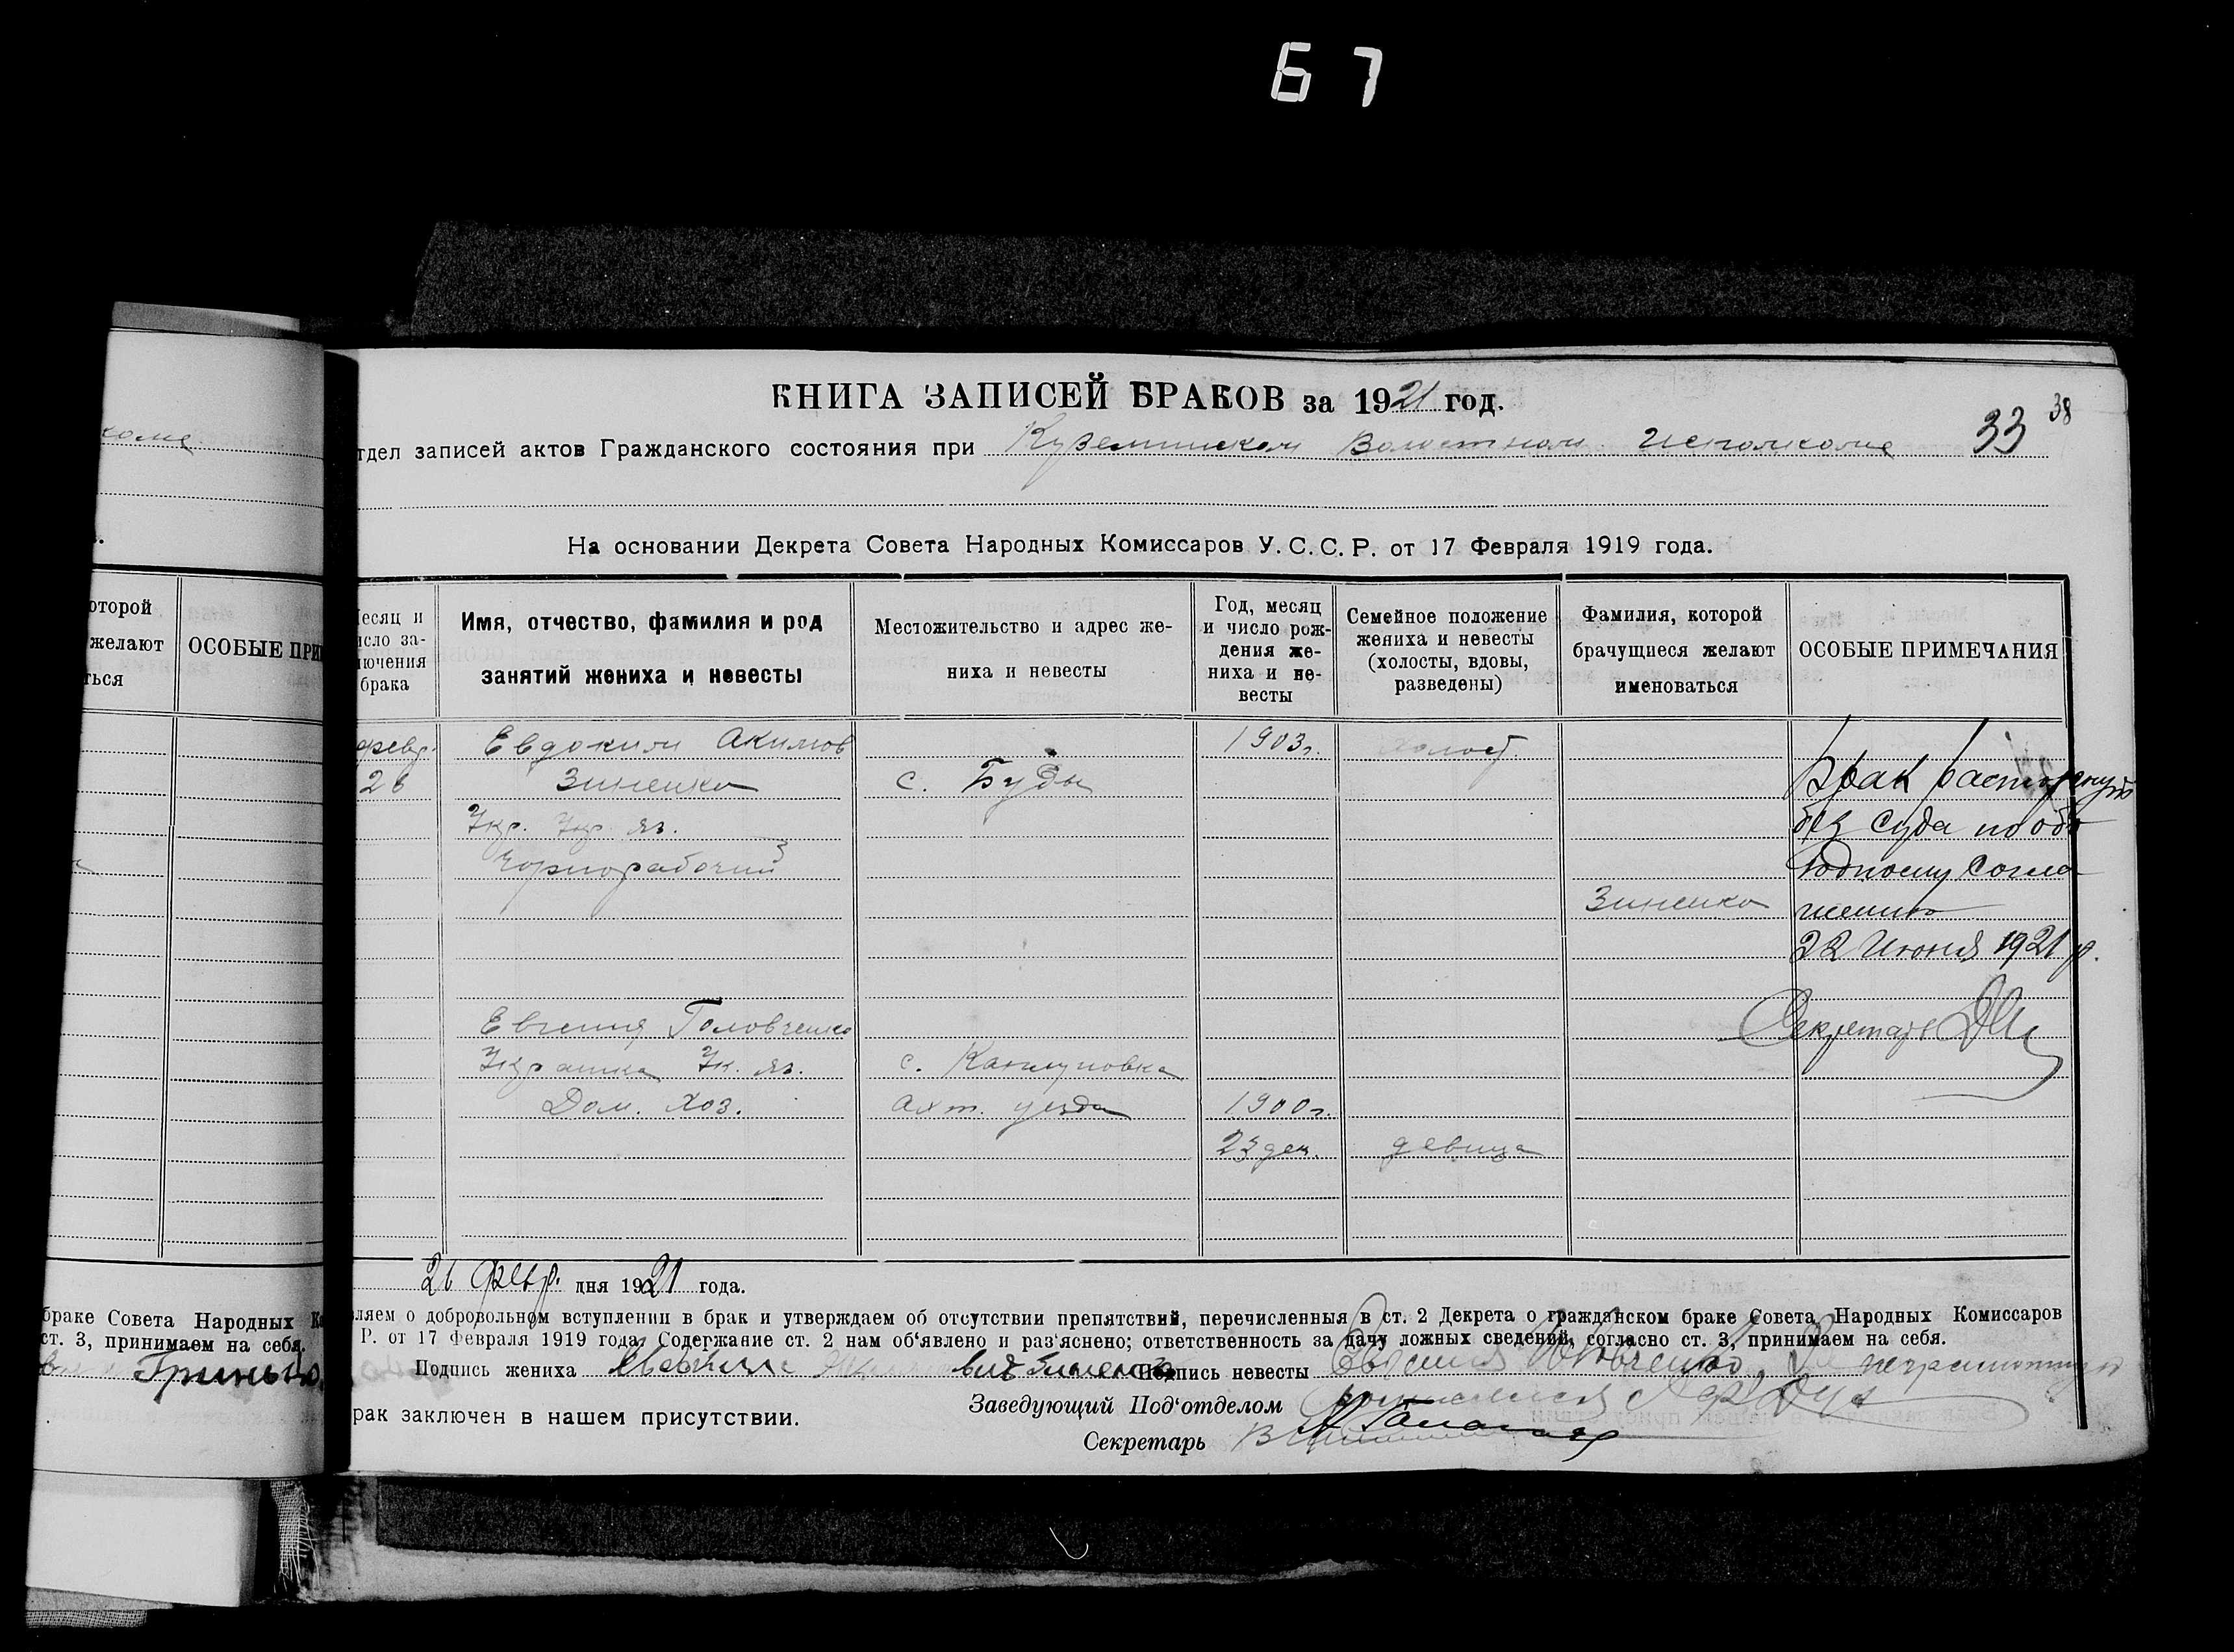 67
КНИГА ЗАПИСЕЙ БРАКОВ за 1921 год.
38
33
тдел записей актов Гражданского состояния при Куземинском Волостном исполкоме
На основании Декрета Совета Народных Комиссаров У.С.С.Р. от 17 Февраля 1919 года.
оторой
желают
ться
ОСОБЫЕ ПРИ
есяц и
исло за-
лючения
брака
Имя, отчество, фамилия и род
занятий жениха и невесты
Местожительство и адрес же-
ниха и невесты
Год, месяц
и число рож-
дения же-
ниха и не-
весты
Семейное положение
жениха и невесты
(холосты, вдовы,
разведены)
Фамилия, которой
брачущиеся желают
именоваться
ОСОБЫЕ ПРИМЕЧАНИЯ
февр. Евдоким Акимов 1903г. холост.
26 Зиненко с. Буды
Укр. Укр. яз.
Чернорабочий
Зиненко
Брак расторгнут
без суда по обо
юдному согла
шению
22 Июня 1921 г.
Секретарь
Евгения Головченко
Украинка Ук. яз. с. Каплуновка
Дом. хоз. Ахт. уезда 1900г.
23 дек. девица
26 февр. дня 1921 года.
браке Совета Народных К
ст. 3, принимаем на себя.
Гринько
вляем о добровольном вступлении в брак и утверждаем об отсутствии препятствий, перечисленныя в ст. 2 Декрета о гражданском браке Совета Народных Комиссаров
Р. от 17 Февраля 1919 года. Содержание ст. 2 нам об‘явлено и раз‘яснено; ответственность за дачу ложных сведений, согласно ст. 3, принимаем на себя.
Подпись жениха Зиненко Подпись невесты неграмотную
рак заключен в нашем присутствии.
Заведующий Под‘отделом
Секретарь